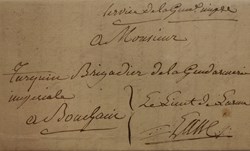 Service de la Gend. impale
a Monsieur
Turquin Brigadier de la Gendarmerie
impériale
a Bouchain
Le Lieut de l'arme